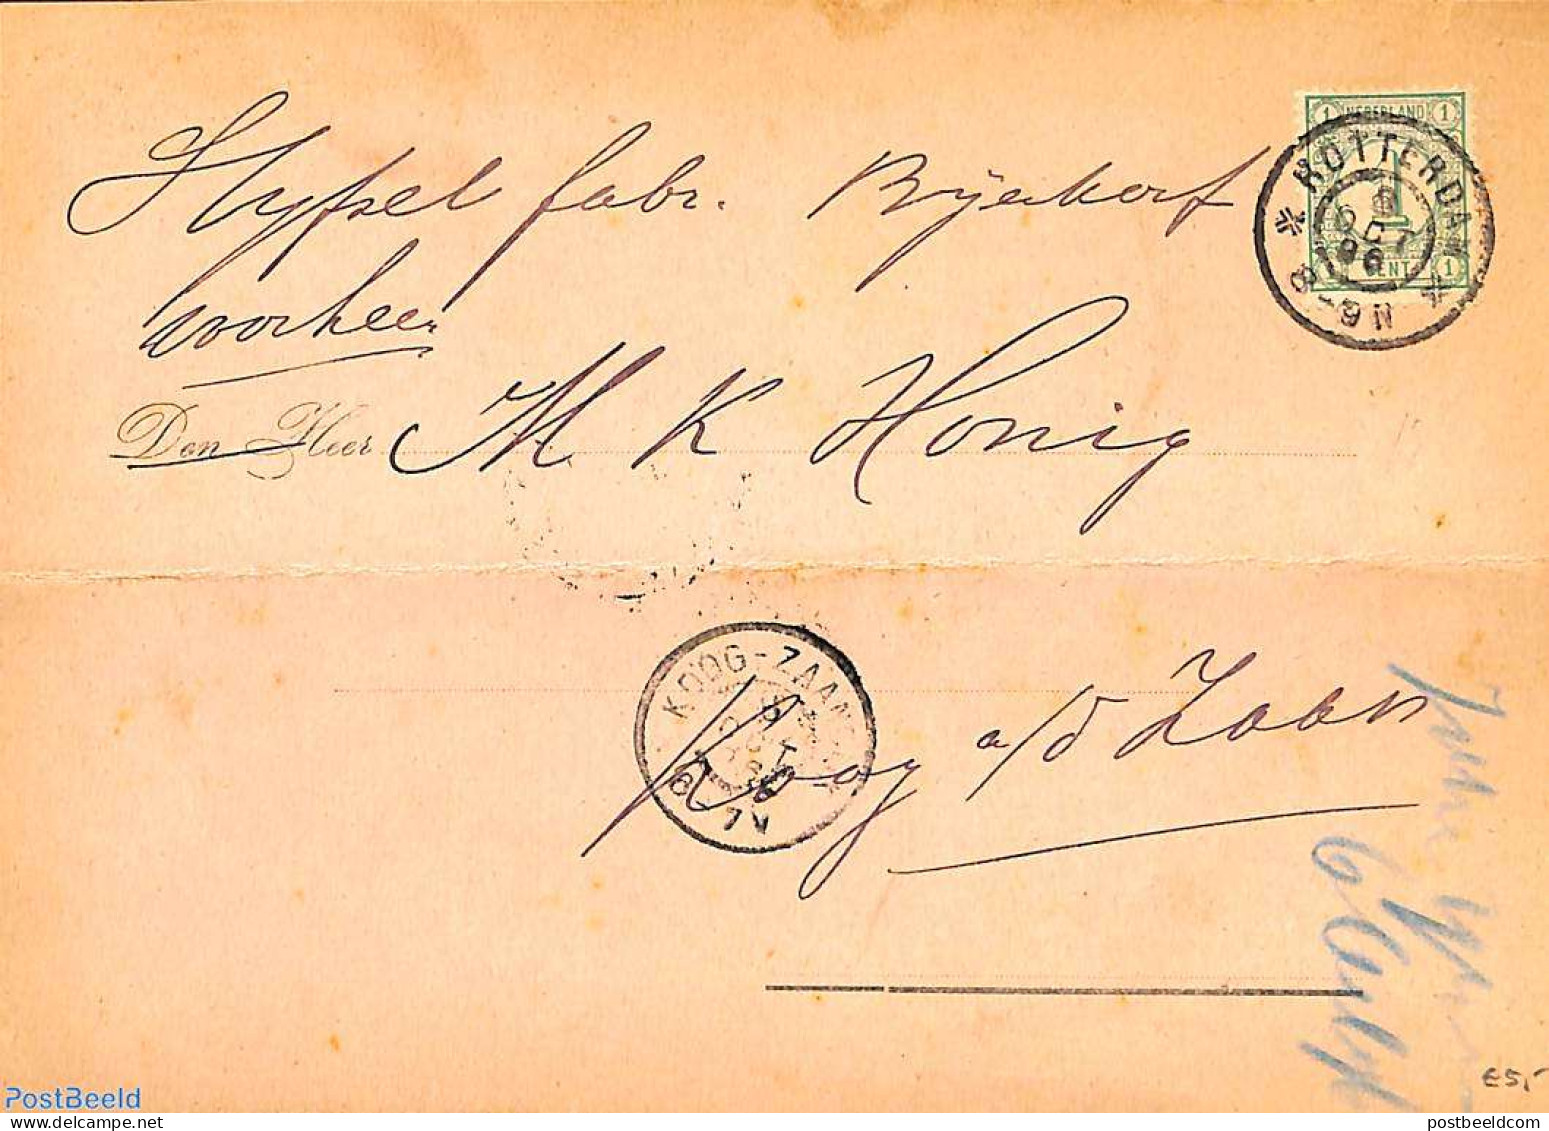 Stijfsel fabr. Bijenkorf
voorheen
Den Heer M K Honig
Koog a/d Zaan
NEDERLAND
1 1
1
CENT 1
ROTTERDAM
OCT
96
8-9N
KOOG-ZAANDIJK
OCT
6-7V
€5,-
PostBeeld
postbeeldcom